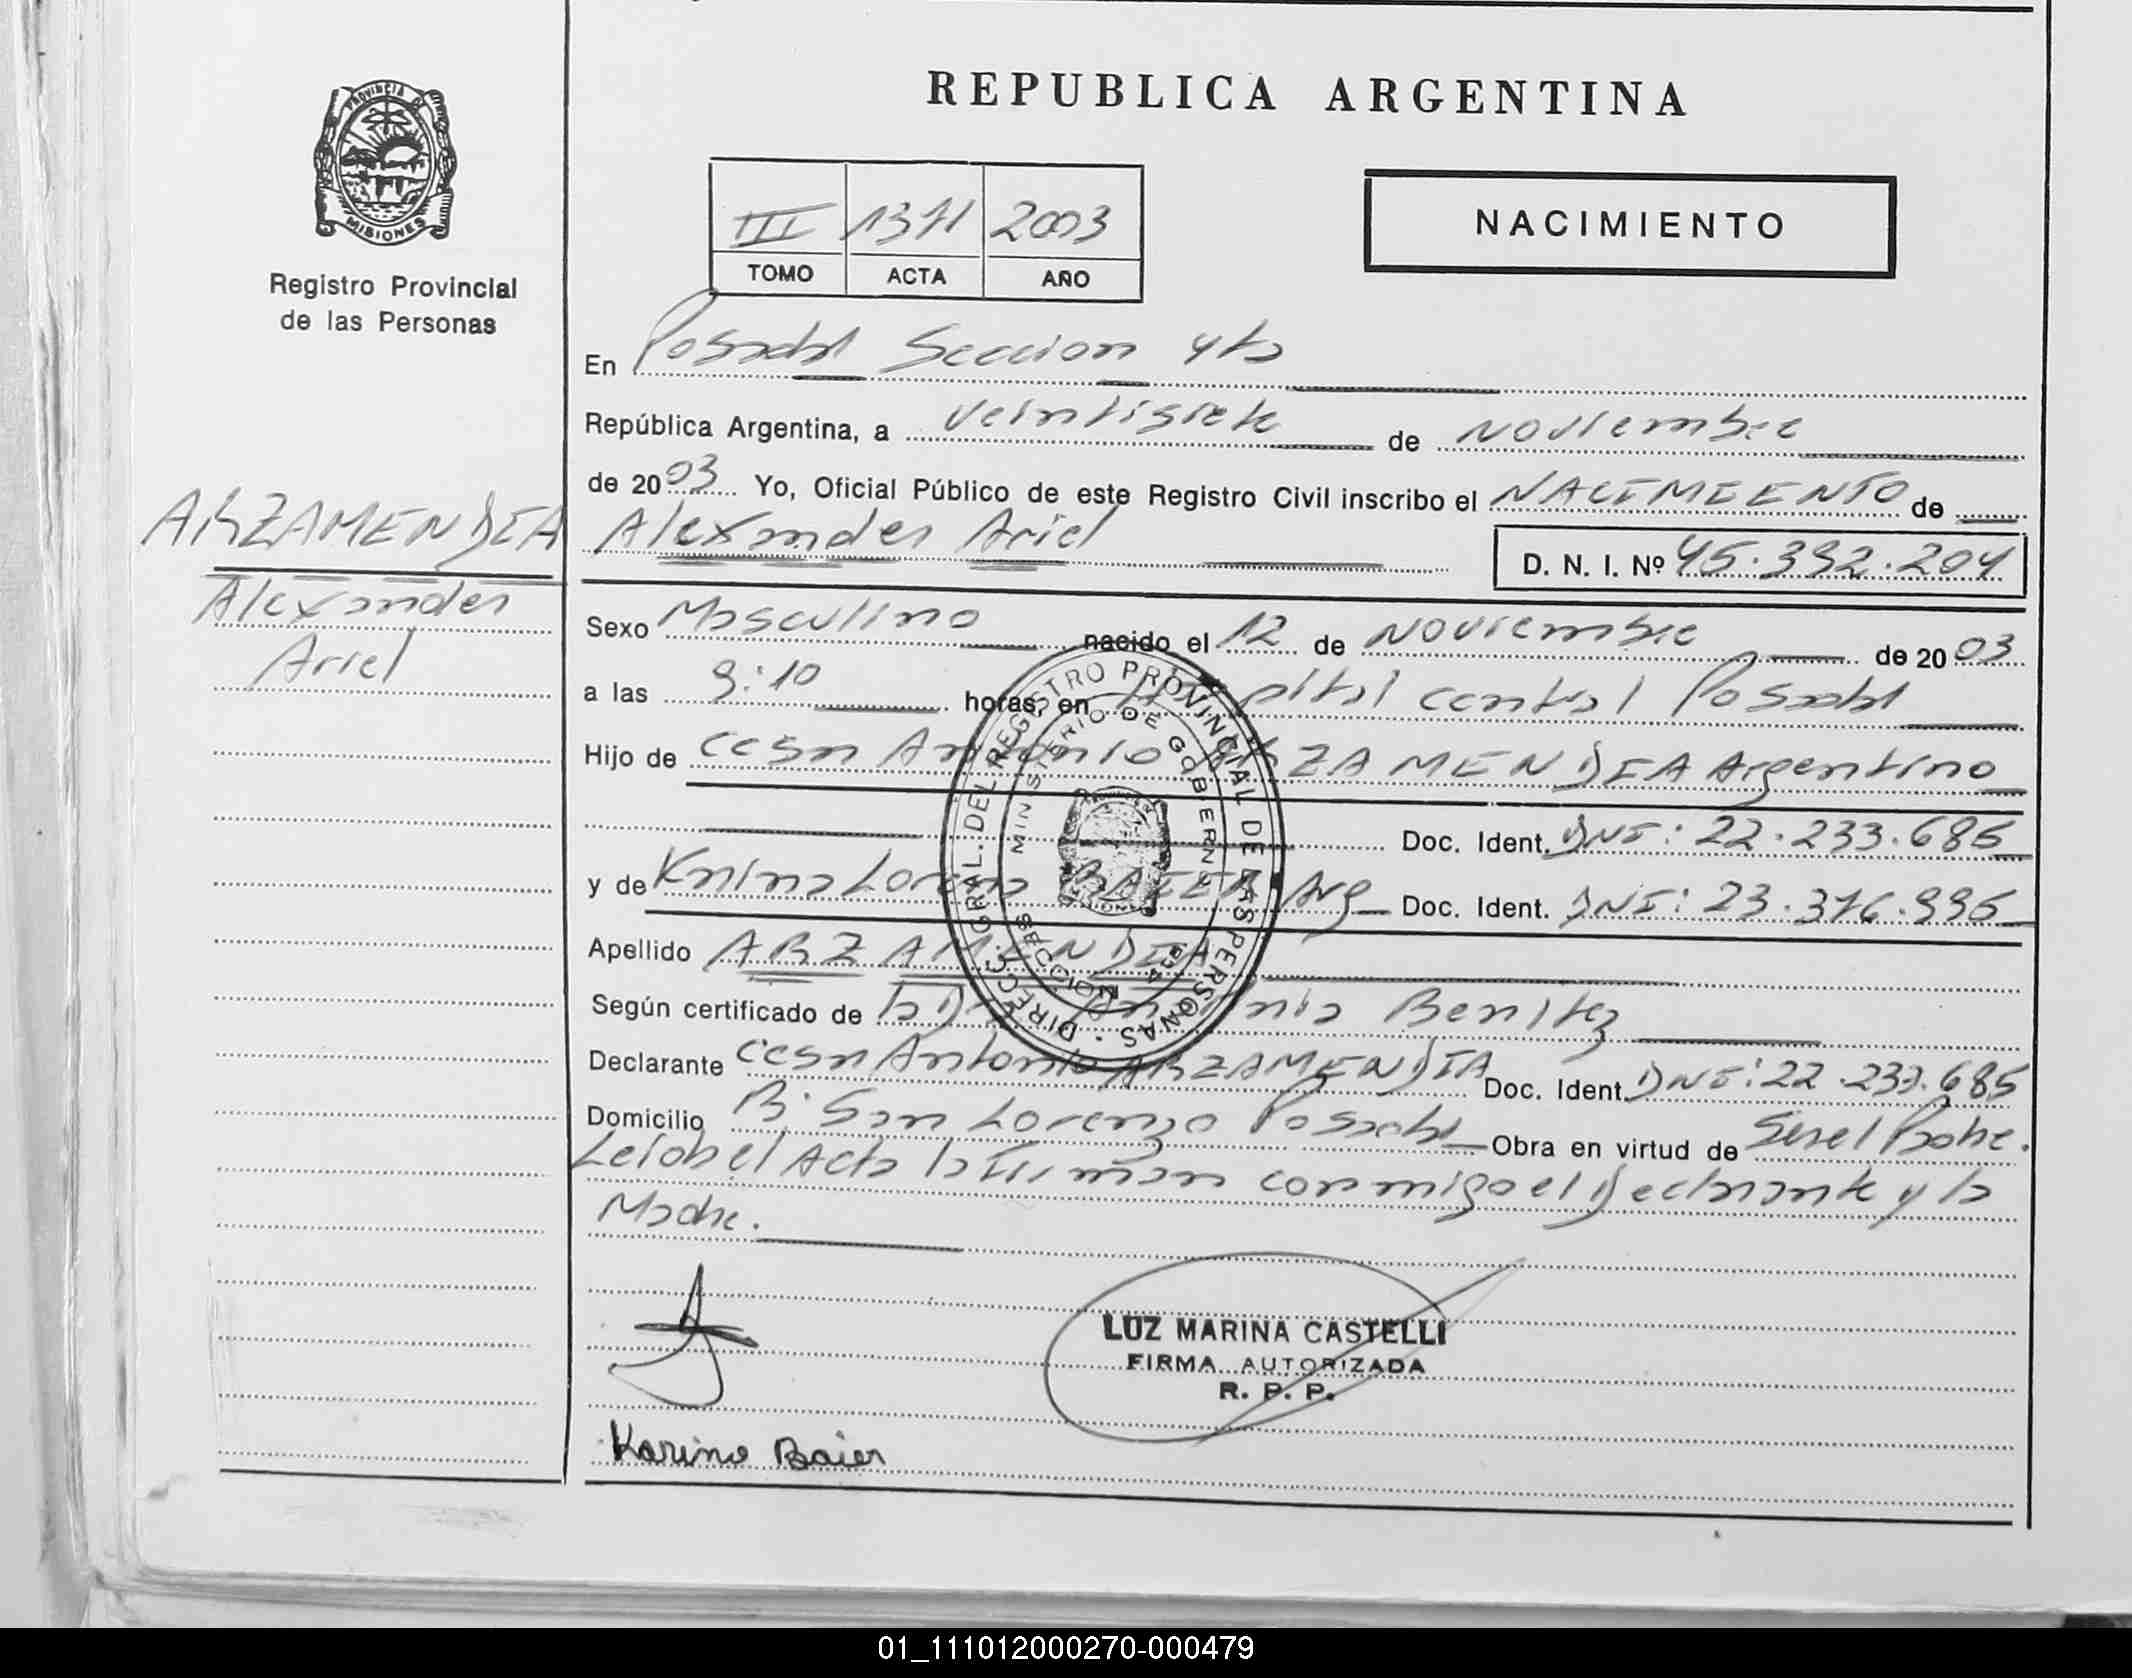 REPUBLICA ARGENTINA
PROVINCIA DE
MISIONES
Registro Provincial
de las Personas
III 1371 2003
TOMO ACTA AÑO
NACIMIENTO
En Posadas Seccion 4ta
República Argentina, a veintisiete de noviembre
de 2003 Yo, Oficial Público de este Registro Civil inscribo el NACIMIENTO de
Alexander Ariel
D. N. I. Nº 45.392.204
ARZAMENDIA
Alexander
Ariel
Sexo Masculino nacido el 12 de noviembre de 2003
a las 9:10 horas, en Hospital central Posadas
Hijo de Cesar Antonio ARZAMENDIA Argentino
Doc. Ident. DNI: 22.233.685
y de Karina Lorena BAIER Arg Doc. Ident. DNI: 23.376.995
Apellido ARZAMENDIA
Según certificado de la Dra Benitez
Declarante Cesar Antonio ARZAMENDIA Doc. Ident. DNI: 22.233.685
Domicilio B. San Lorenzo Posadas Obra en virtud de Ser el Padre.
Leida el Acta la firman conmigo el Declarante y la
Madre.
DIRECC. GRAL. DEL REGISTRO PROVINCIAL DE LAS PERSONAS
MINISTERIO DE GOBIERNO
SECCION 4ta
LUZ MARINA CASTELLI
FIRMA AUTORIZADA
R. P. P.
Karina Baier
01_111012000270-000479